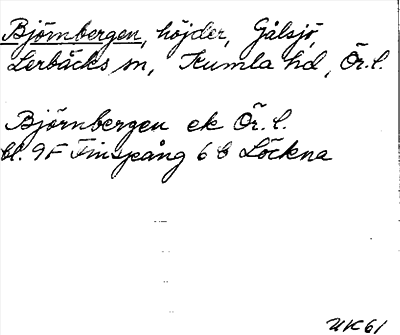 Björnbergen, höjder, Gålsjö,
Lerbäcks sn, Kumla hd, Ör. l.
Björnbergen ek Ör. l.
bl. 9F Finspång 6 b Löckna
UK61